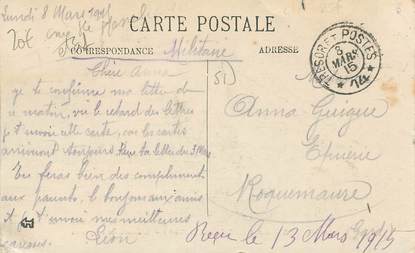 Lundi 8 Mars 1915
20€
CARTE POSTALE
CORRESPONDANCE Militaire
ADRESSE
Chère Anna
je te confirme ma lettre de
ce matin, vu le retard des lettres
je t'envoie cette carte, car les cartes
arrivent toujours. Reçu ta lettre du 3 Mars
Tu feras bien des compliments
aux parents, le bonjour aux amis
et t'envoie mes meilleures
caresses. Léon
TRESOR ET POSTES
8
MARS
15
* 14 *
Anna Guigue
Epicerie
Roquemaure
Gard
Reçu le 13 Mars 1915